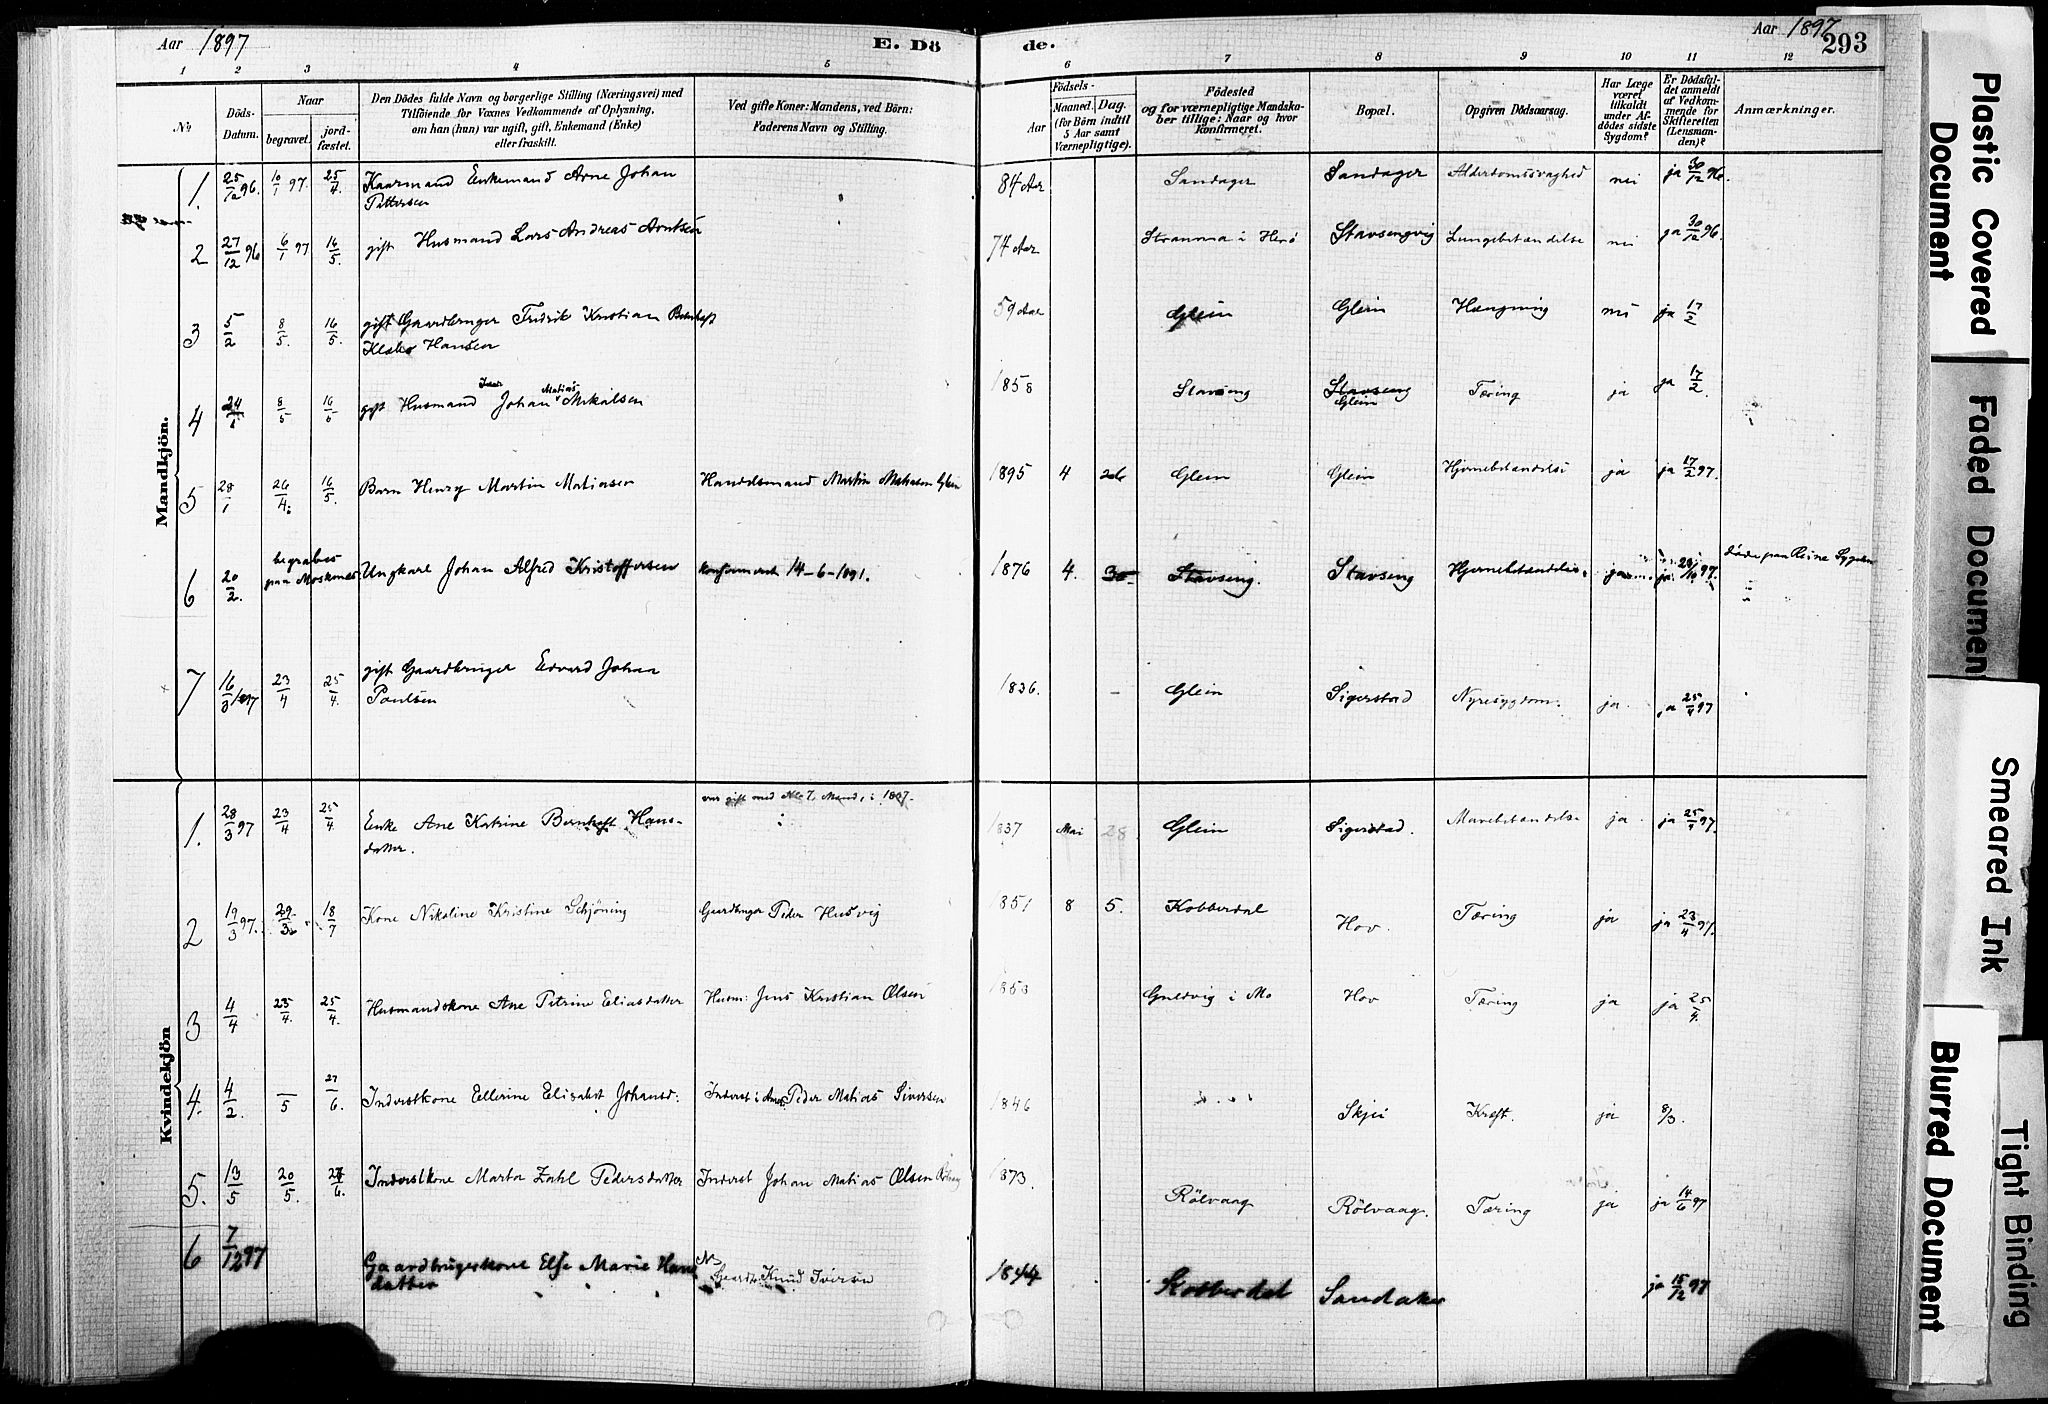 Aar 1897
E. Dö
de.
Aar 1897
293
1 2 3 4 5 6 7 8 9 10 11 12
No
Döds-
Datum.
Naar
begravet.
jord-
fæstet.
Den Dödes fulde Navn og borgerlige Stilling (Næringsvei) med
Tilföiende for Voxnes Vedkommende af Oplysning,
om han (hun) var ugift, gift, Enkemand (Enke)
eller fraskilt.
Ved gifte Koner: Mandens, ved Börn:
Faderens Navn og Stilling.
Födsels-
Aar
Maaned.
Dag.
(for Börn indtil
5 Aar samt
Værnepligtige).
Födested
og for værnepligtige Mandska-
ber tillige: Naar og hvor
Konfirmeret.
Bopæl.
Opgiven Dödsaarsag.
Har Læge
været
tilkaldt
under Af-
dödes sidste
Sygdom?
Er Dödsfal-
det anmeldt
af Vedkom-
mende for
Skifteretten
(Lensman-
den)?
Anmærkninger.
Mandkjön.
1. 25/12 96. 10/1 97. 25/4. Kaarmand Enkemand Arne Johan 84 Aar Sandager Sandager Alderdomssvaghed nei ja 30/12 96.
Pettersen
2 27/12 96 6/1 97 16/5. gift Husmand Lars Andreas Arntsen 74 Aar Stramma i Herö Stavsengvig Lungebetændelse nei ja 30/12 96.
3 5/2 8/5. 16/5. gift Gaardbruger Fredrik Kristian Bernhoft 59 Aar Glein Glein Hængning nei ja 17/2
Hansen
4 8/5 16/5 gift Husmand Johan Matias Mikalsen 1858 Stavseng Stavseng Tæring ja ja 17/2.
Glein
5 28/1 26/4. 16/5. Barn Henry Martin Matiasen Handelsmand Martin Matiasen Glein 1895 4 26 Glein Glein Hjernebetændelse ja ja 17/2 97.
6 20/2. begraves
paa Moskenes Ungkarl Johan Alfred Kristoffersen konfirmeret 14-6-1891. 1876 4. 30 Stavseng. Stavseng Hjernebetændelse ja ja 97. døde paa Reine
7 16/3 1897 23/4 25/4. gift Gaardbruger Edvard Johan 1836. - Glein Sigerstad Nyresygdom. ja. ja 25/4 97
Paulsen
Kvindekjön
var gift med No 7, Mand, i 1897.
1. 28/3 97 23/4 25/4. Enke Ane Katrine Bernhoft Hans- 1837 Mai 28 Glein Sigerstad. Mavebetændelse ja ja 25/4 97.
datter.
2 19/3 97. 29/3 18/7 Kone Nikoline Kristine Schjöning Gaardbruger Peder Husvig 1851 8 5. Kobberdal Hov. Tæring ja ja 23/4 97.
3 4/4 23/4. 25/4. Husmandskone Ane Petrine Eliasdatter Husm: Jens Kristian Olsen 1853 Guldvig i Mo Hov Tæring ja ja 25/4.
4. 4/2. /5 27/6. Inderstkone Ellerine Elisabet Johansd: Inderst Peder Matias Siversen 1846 Skjei Kræft. ja 8/3.
5. 13/5 20/5. 27/6. Inderstkone Marta Zahl Pedersdatter Inderst Johan Matias Olsen 1873. Rölvaag Rölvaag. Tæring ja ja 14/6 97
6 7/12 97 Gaardbrugerkone Else Marie Hans Gaardb. Knud Iversen 1844 Kobberdal Sandaker ja 15/12 97
datter
Plastic Covered
Document
Faded Document
Smeared Ink
Blurred Document
Tight Binding